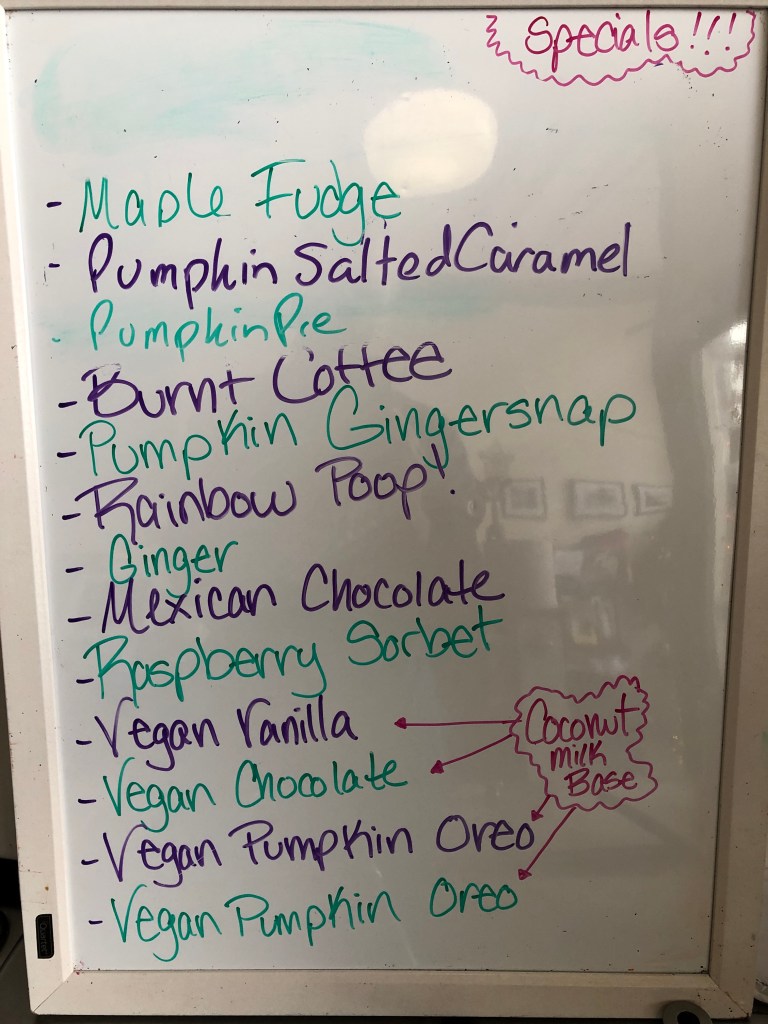 Specials!!!
- Maple Fudge
- Pumpkin Salted Caramel
- Pumpkin Pie
- Burnt Coffee
- Pumpkin Gingersnap
- Rainbow Poop!
- Ginger
- Mexican Chocolate
- Raspberry Sorbet
- Vegan Vanilla
- Vegan Chocolate
- Vegan Pumpkin Oreo
- Vegan Pumpkin Oreo
Coconut
milk
Base